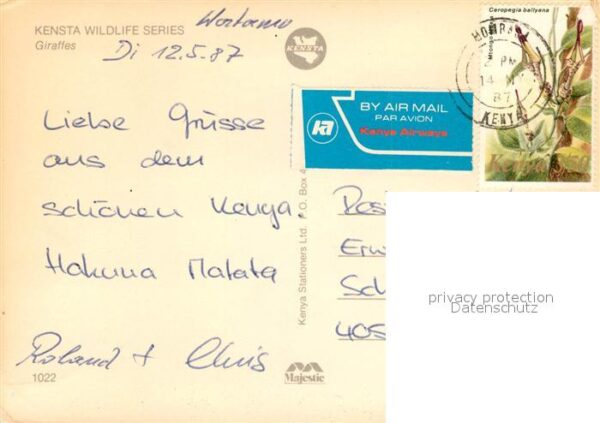 KENSTA WILDLIFE SERIES
Giraffes
Watamu
Di 12.5.87
KENSTA
Ceropegia ballyana
PM
87
KENYA
BY AIR MAIL
PAR AVION
Kenya Airways
Liebe Grüsse
aus dem
schönen Kenya.
Hakuna Matata
Roland + Chris
1022
Kenya Stationers Ltd. P.O. Box 4
Majestic
Erw
Sch
405
privacy protection
Datenschutz